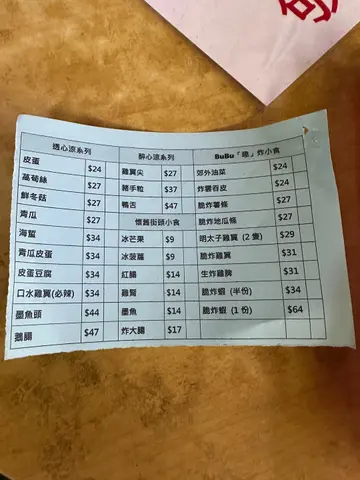 透心涼系列 醉心涼系列 BuBu「噪」炸小食
皮蛋 $24 雞翼尖 $27 郊外油菜 $24
萵筍絲 $27 豬手粒 $37 炸雲吞皮 $24
鮮冬菇 $27 鴨舌 $47 脆炸薯條 $27
青瓜 $27 懷舊街頭小食 脆炸地瓜條 $27
海蜇 $34 冰芒果 $9 明太子雞翼 (2 隻) $29
青瓜皮蛋 $34 冰菠蘿 $9 脆炸雞翼 $31
皮蛋豆腐 $34 紅腸 $14 生炸雞髀 $31
口水雞翼(必辣) $34 雞腎 $14 脆炸蝦 (半份) $34
墨魚頭 $44 墨魚 $14 脆炸蝦 (1 份) $64
鵝腸 $47 炸大腸 $17